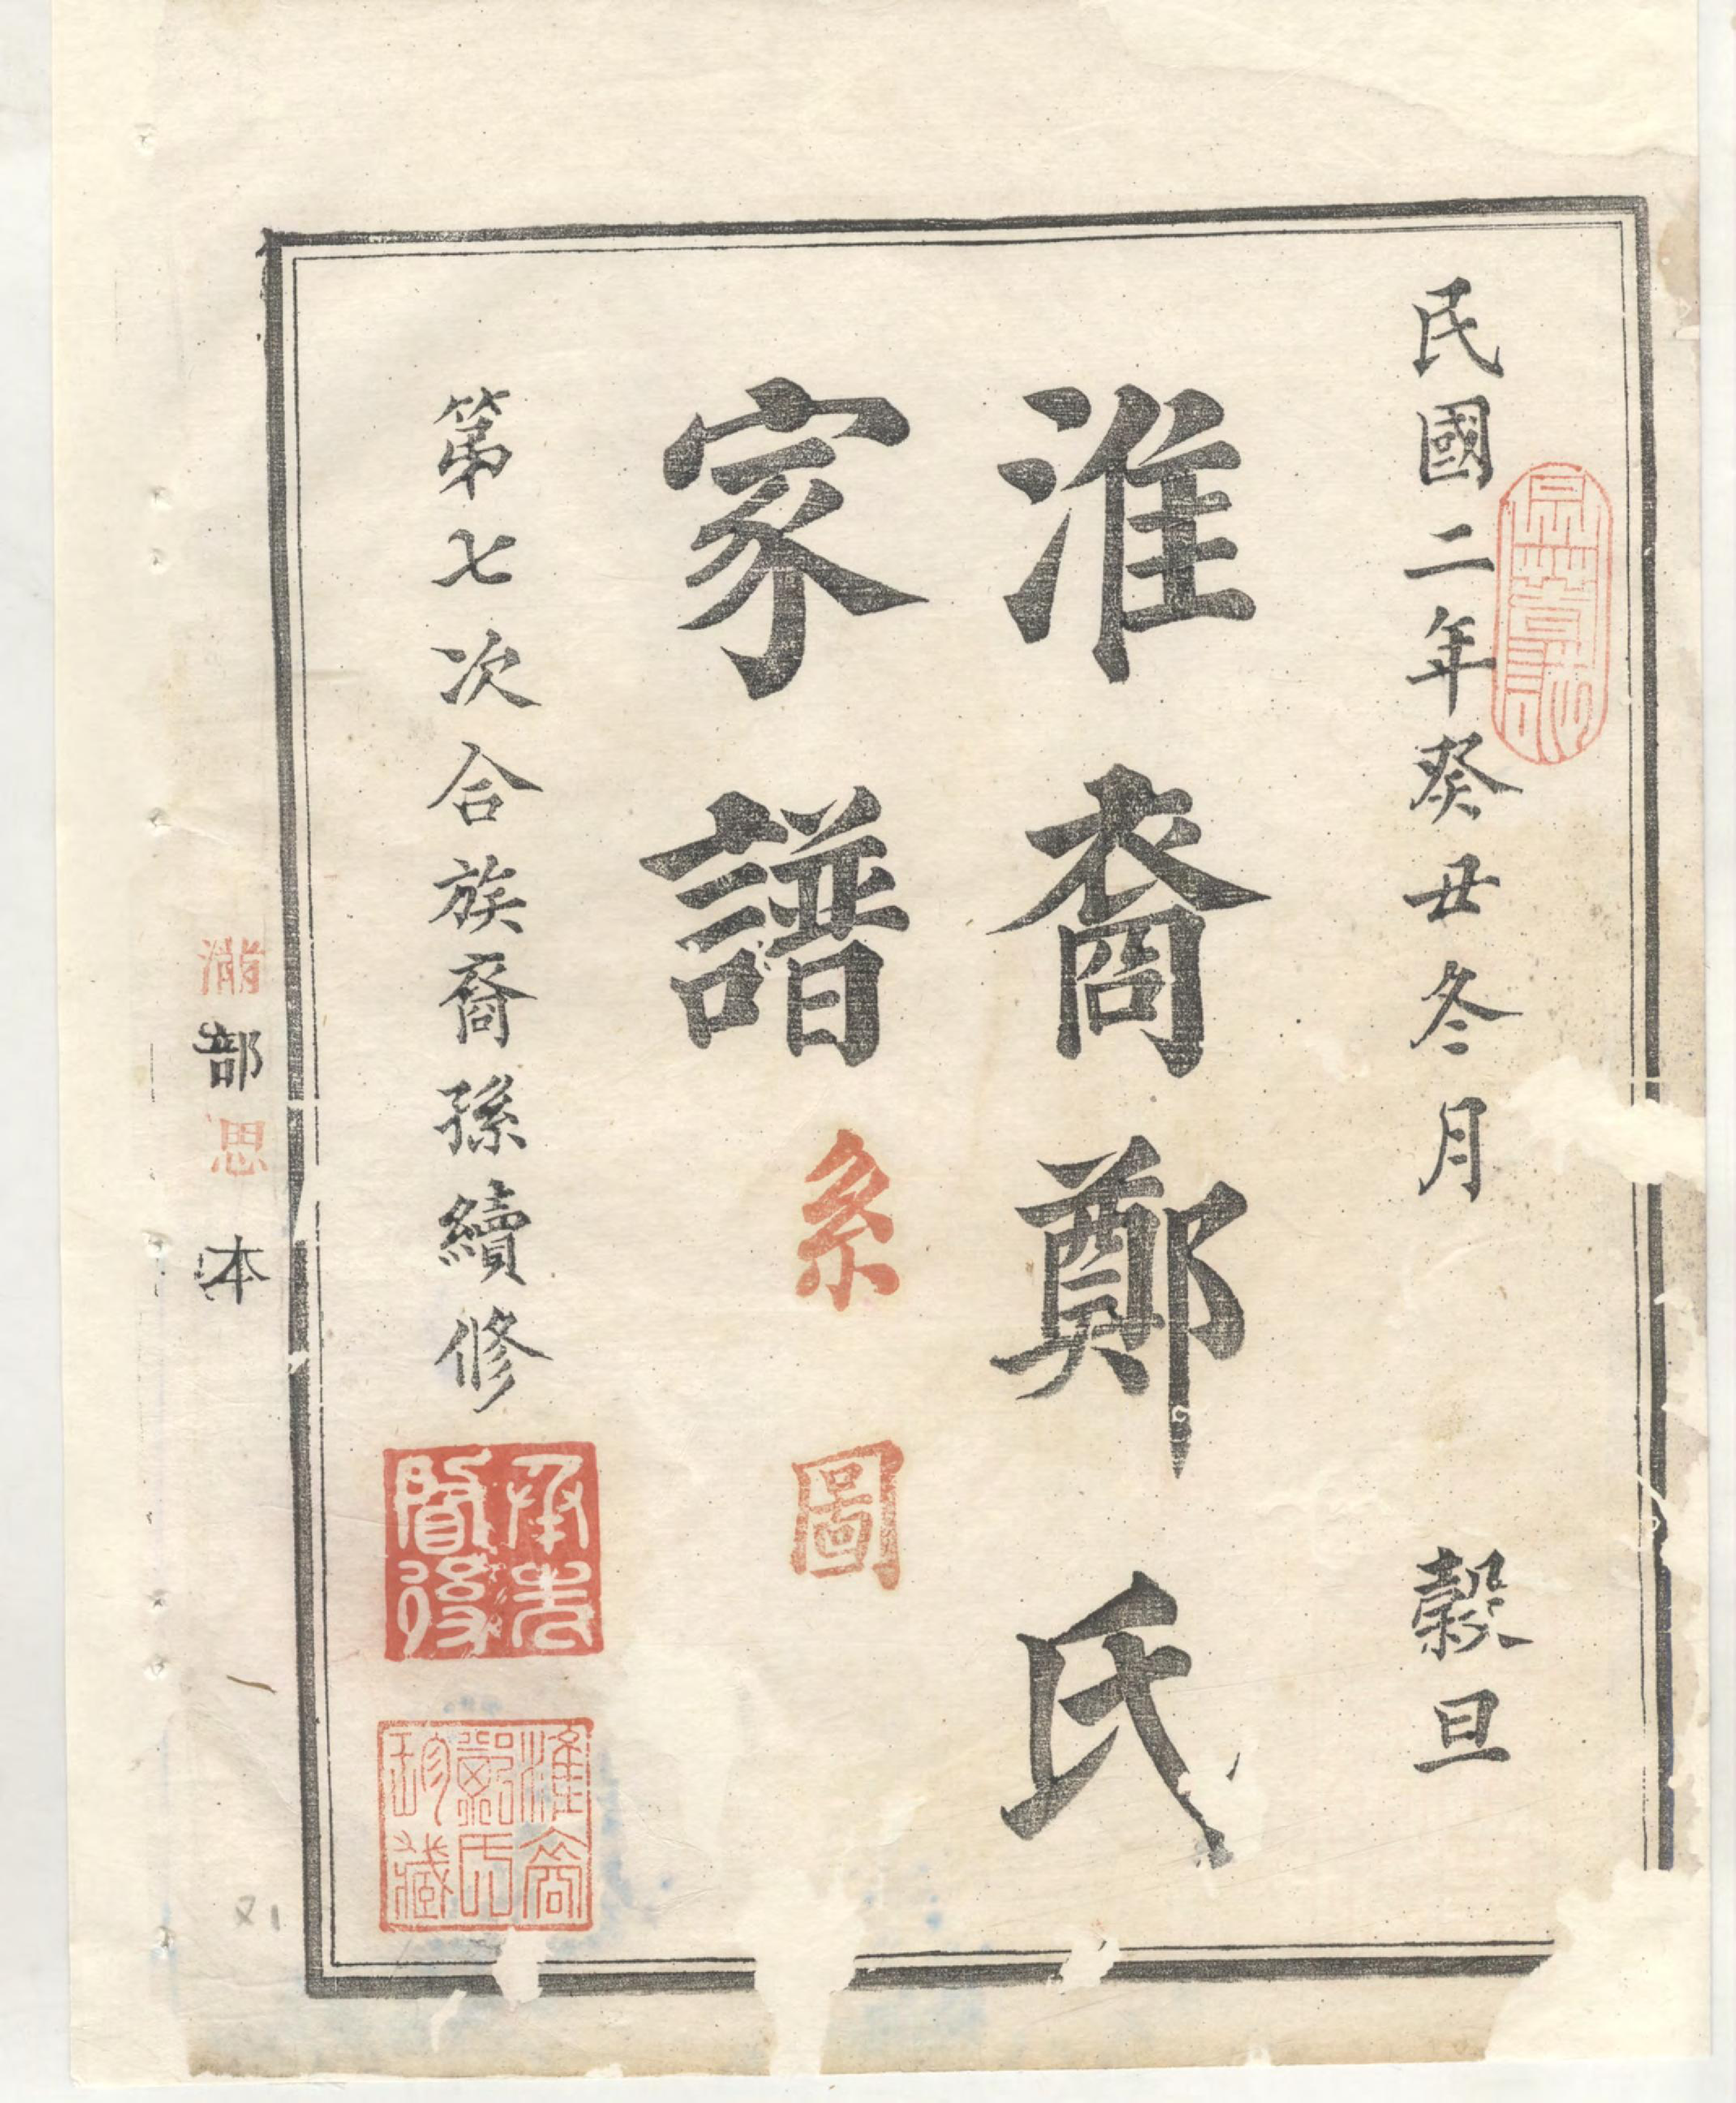 民國二年癸丑冬月 穀旦
淮裔鄭氏
家譜系圖
第七次合族裔孫續修
承先啓後
淮裔鄭氏珍藏
部思本